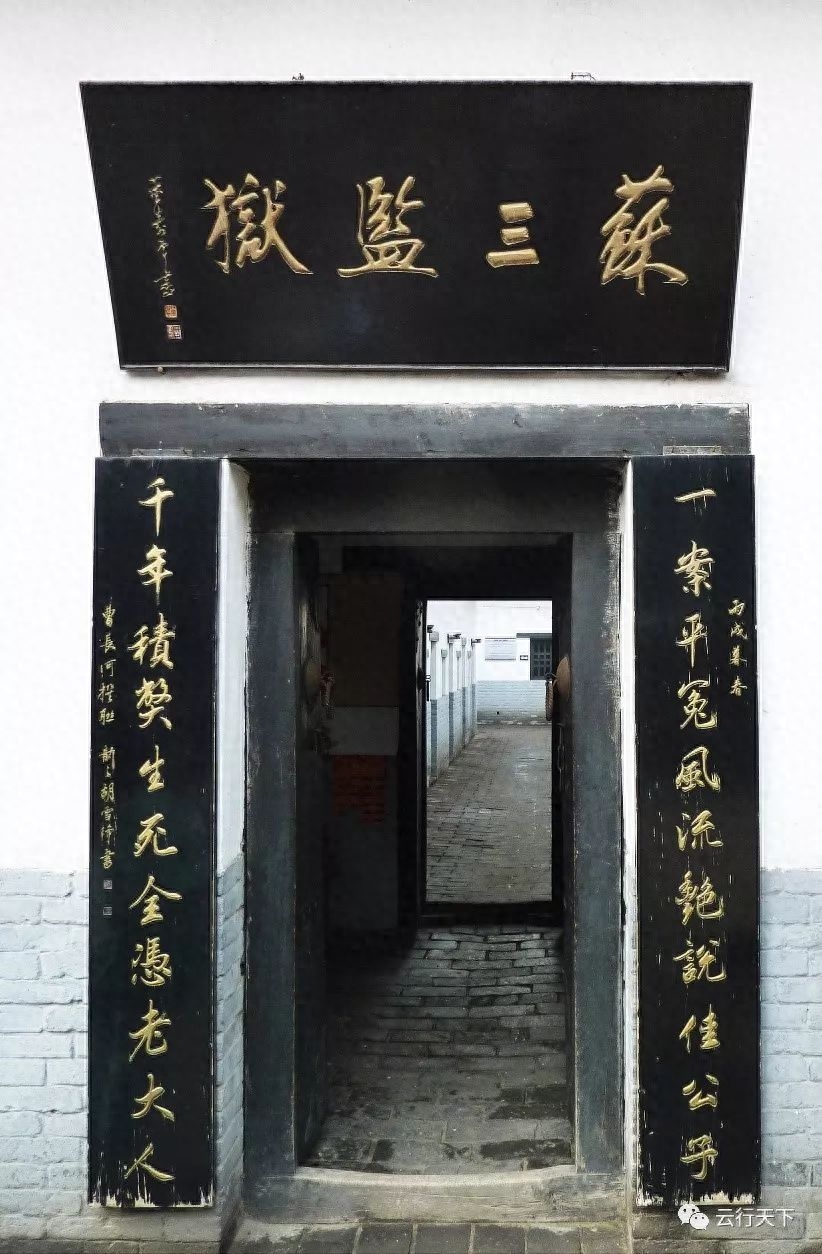 蘇三監獄
董壽平書
一案平冤風流艷說佳公子
丙戌暮春
千年積獘生死全憑老大人
曹長河撰聯 胡雪書
云行天下